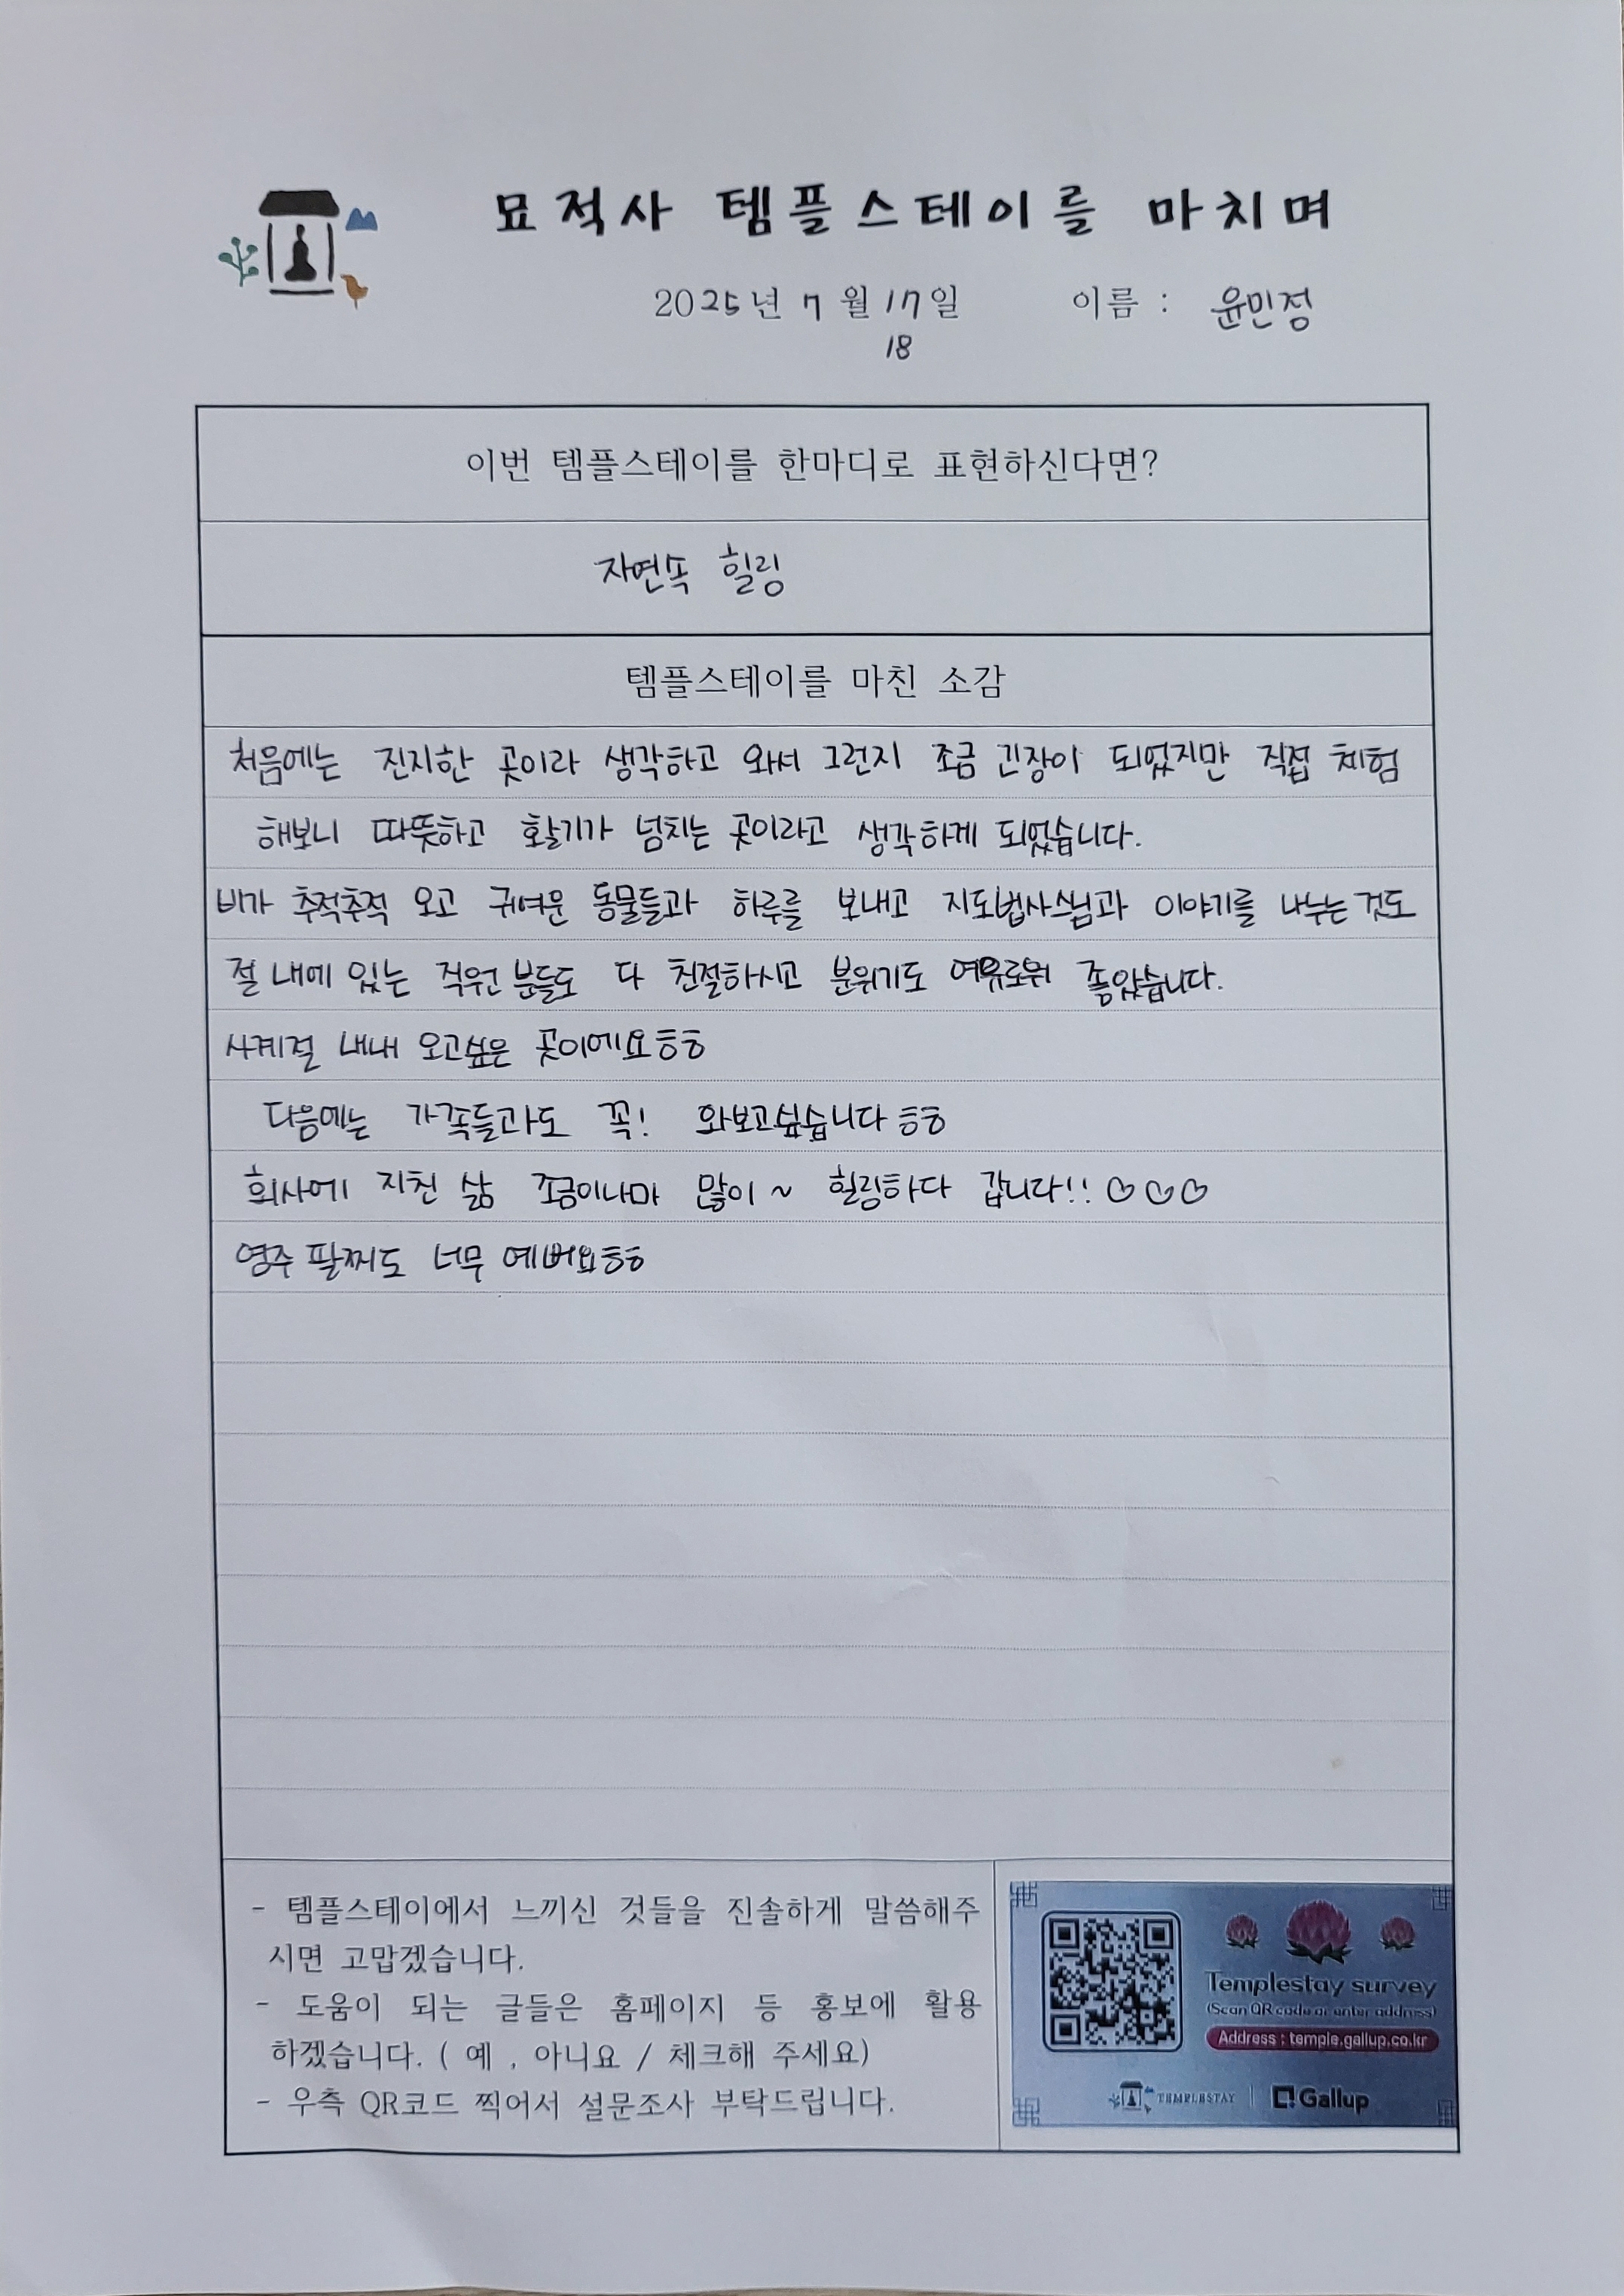 묘적사 템플스테이를 마치며
2025년 7월 17일 이름 : 윤민정
18
이번 템플스테이를 한마디로 표현하신다면?
자연속 힐링
템플스테이를 마친 소감
처음에는 진지한 곳이라 생각하고 와서 그런지 조금 긴장이 되었지만 직접 체험
해보니 따뜻하고 활기가 넘치는 곳이라고 생각하게 되었습니다.
비가 추적추적 오고 귀여운 동물들과 하루를 보내고 지도법사스님과 이야기를 나누는 것도
절 내에 있는 직원 분들도 다 친절하시고 분위기도 여유로워 좋았습니다.
사계절 내내 오고싶은 곳이에요ㅎㅎ
다음에는 가족들과도 꼭! 와보고싶습니다ㅎㅎ
회사에 지친 삶 조금이나마 많이~ 힐링하다 갑니다!! ♡♡♡
영주 팔찌도 너무 예뻐요ㅎㅎ
- 템플스테이에서 느끼신 것들을 진솔하게 말씀해주
시면 고맙겠습니다.
- 도움이 되는 글들은 홈페이지 등 홍보에 활용
하겠습니다. ( 예 , 아니요 / 체크해 주세요)
- 우측 QR코드 찍어서 설문조사 부탁드립니다.
Templestay survey
(Scan QR code or enter address)
Address : temple.gallup.co.kr
TEMPLESTAY | Gallup